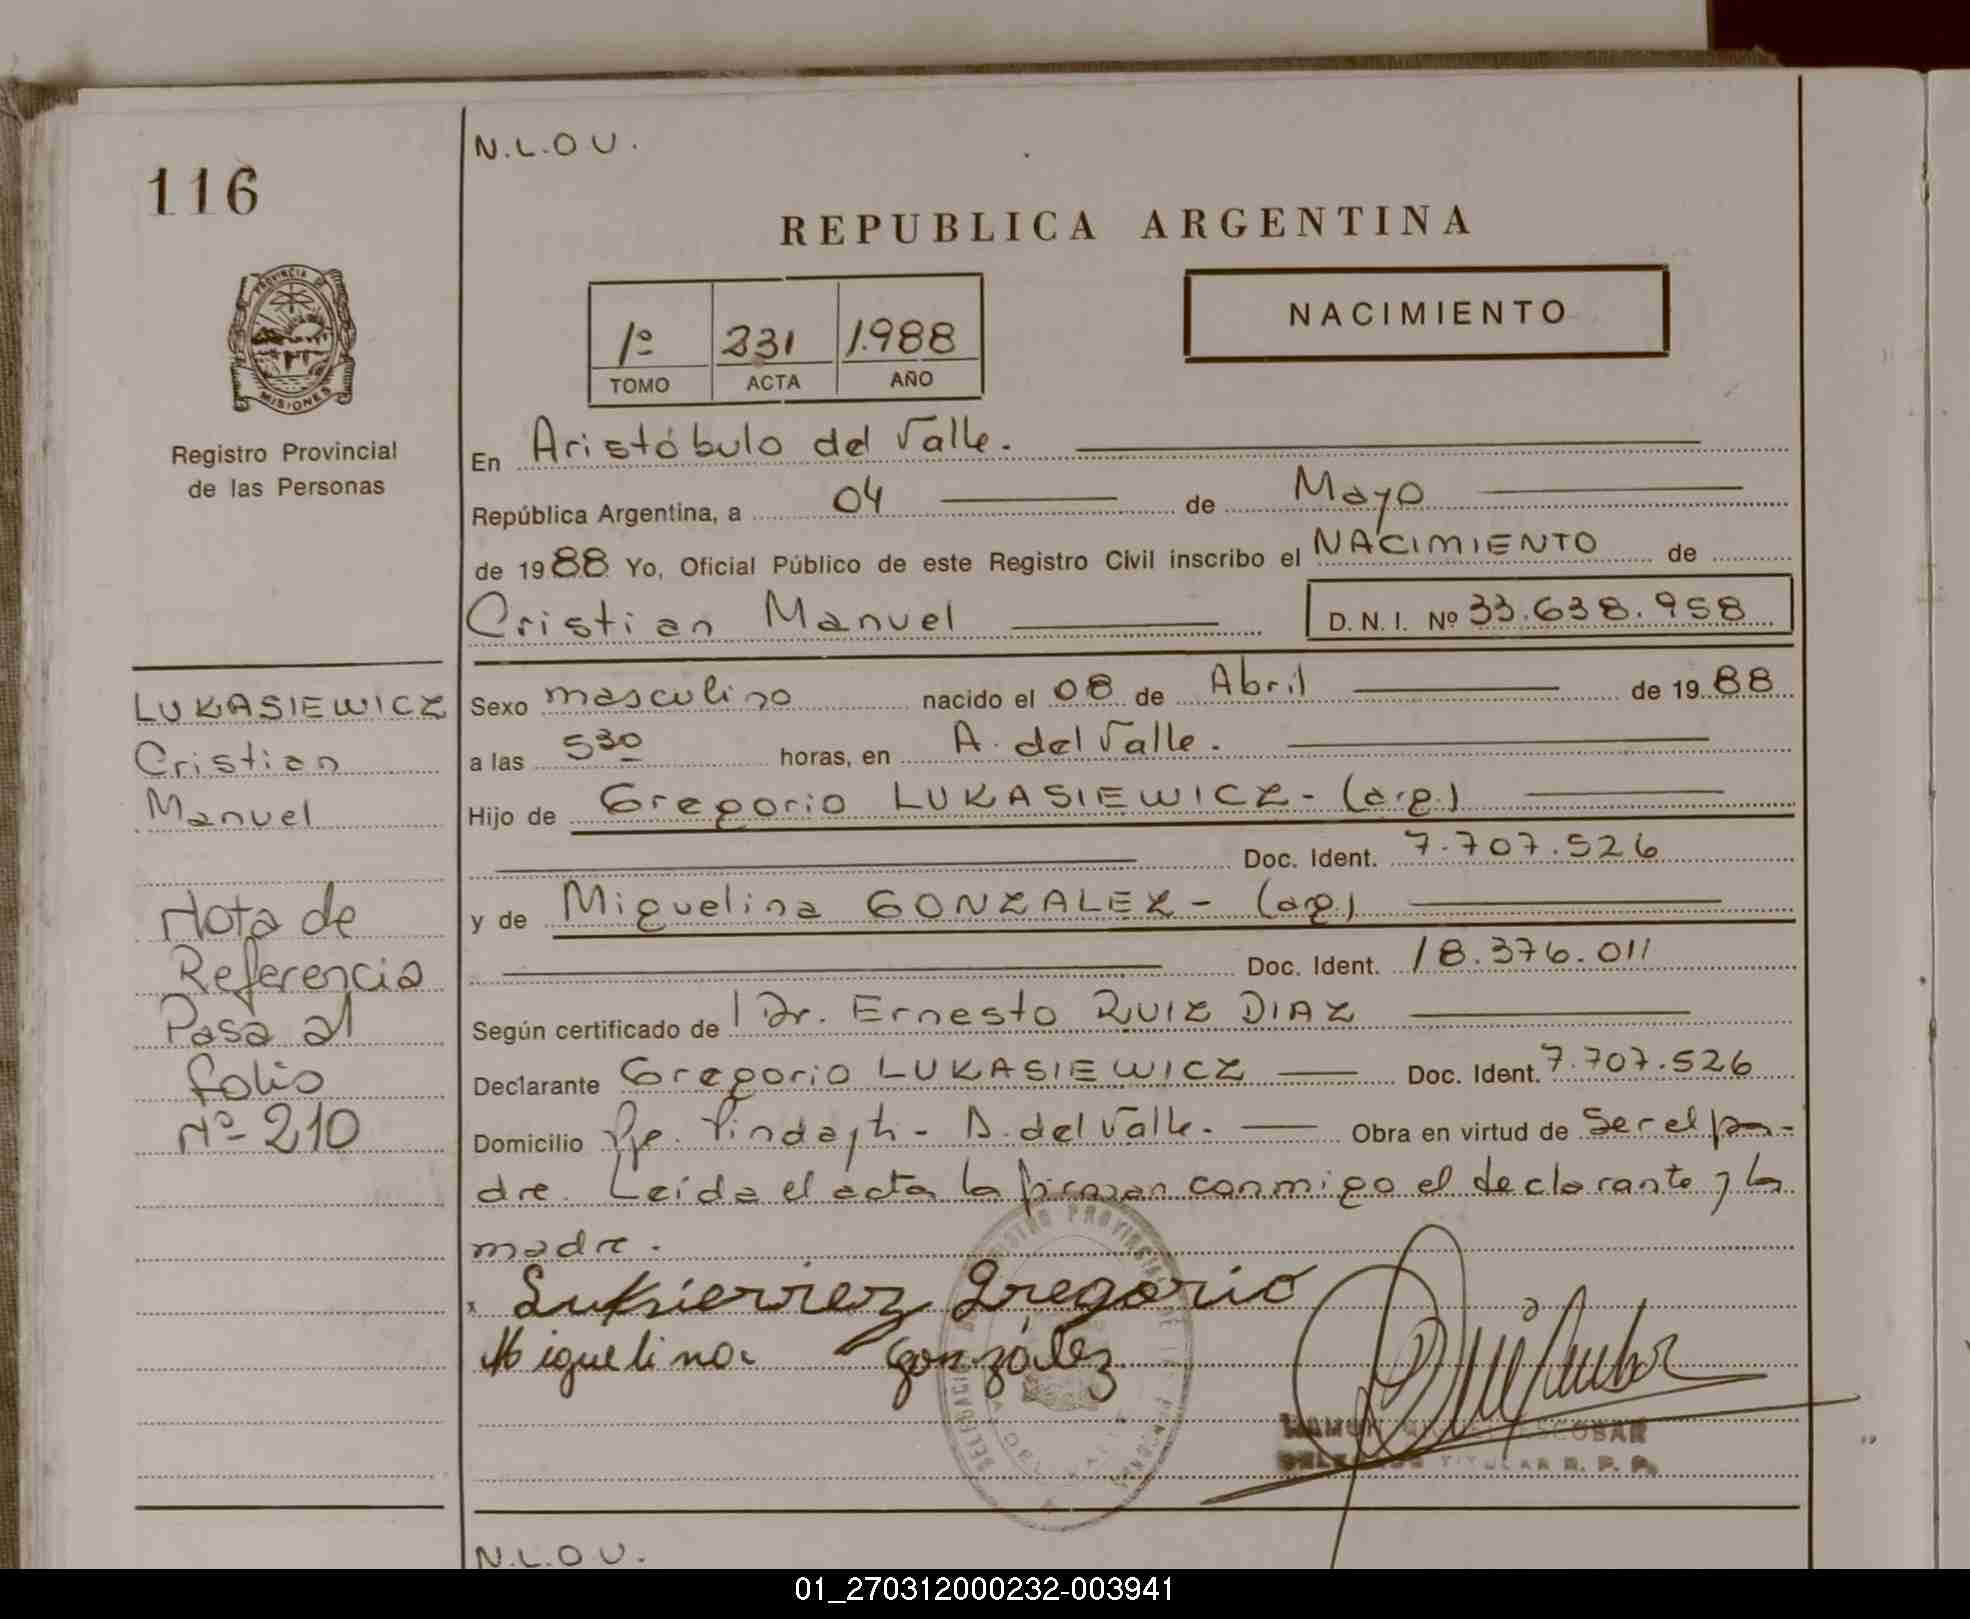 N.L.O U.
116
REPUBLICA ARGENTINA
PROVINCIA DE
MISIONES
1º 231 1.988
TOMO ACTA AÑO
NACIMIENTO
Registro Provincial
de las Personas
En Aristóbulo del Valle.
República Argentina, a 04 de Mayo
de 1988 Yo, Oficial Público de este Registro Civil inscribo el NACIMIENTO de
Cristian Manuel D. N. I. Nº 33.638.958
LUKASIEWICZ
Cristian
Manuel
Nota de
Referencia
Pasa al
folio
Nº 210
Sexo masculino nacido el 08 de Abril de 1988
a las 530 horas, en A. del Valle.
Hijo de Gregorio LUKASIEWICZ - (arg.)
Doc. Ident. 7.707.526
y de Miguelina GONZALEZ - (arg.)
Doc. Ident. 18.376.011
Según certificado de Dr. Ernesto RUIZ DIAZ
Declarante Gregorio LUKASIEWICZ Doc. Ident. 7.707.526
Domicilio Pje. Pindayti - A. del Valle. Obra en virtud de ser el pa-
dre. Leída el acta la firman conmigo el declarante y la
madre.
x Gregorio
Miguelina González
REGISTRO PROVINCIAL DE
ESCOBAR
TITULAR R. P. P.
N.L.O U.
01_270312000232-003941